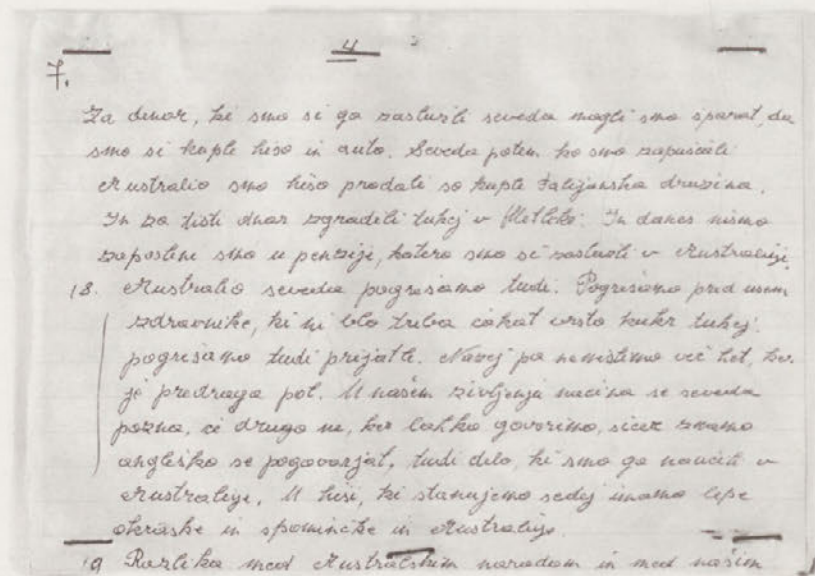 4
7.
Za denar, ki smo si ga zaslužli seveda magli smo sparat, da
smo si kuple hiso in auto. Seveda potem ko smo zapuščali
Australio smo hiso prodali so kuple Italijanska druzina.
In za tisti dnar zgradili tukej v Metleki. In danes nismo
zaposlene smo u penziji, katero smo si zasluzli v Australiji.
18. Australio seveda pogresamo tudi. Pogresamo pred usem
zdravnike, ki ni blo treba cakat vrsto kukr tukej.
pogresamo tudi prijatle. Nazej pa nemislimo več het, ker
je predraga pot. U našem zivljenju nacina se seveda
pozna, ce drugo ne, ker lahko govorimo, sicer znamo
angleško se pogovarjat, tudi delo, ki smo ga naucili v
Australiji. U hisi, ki stanujemo sedej imamo lepe
okraske in spomincke in Australije.
19 Razlika med Australskim narodam in med našim